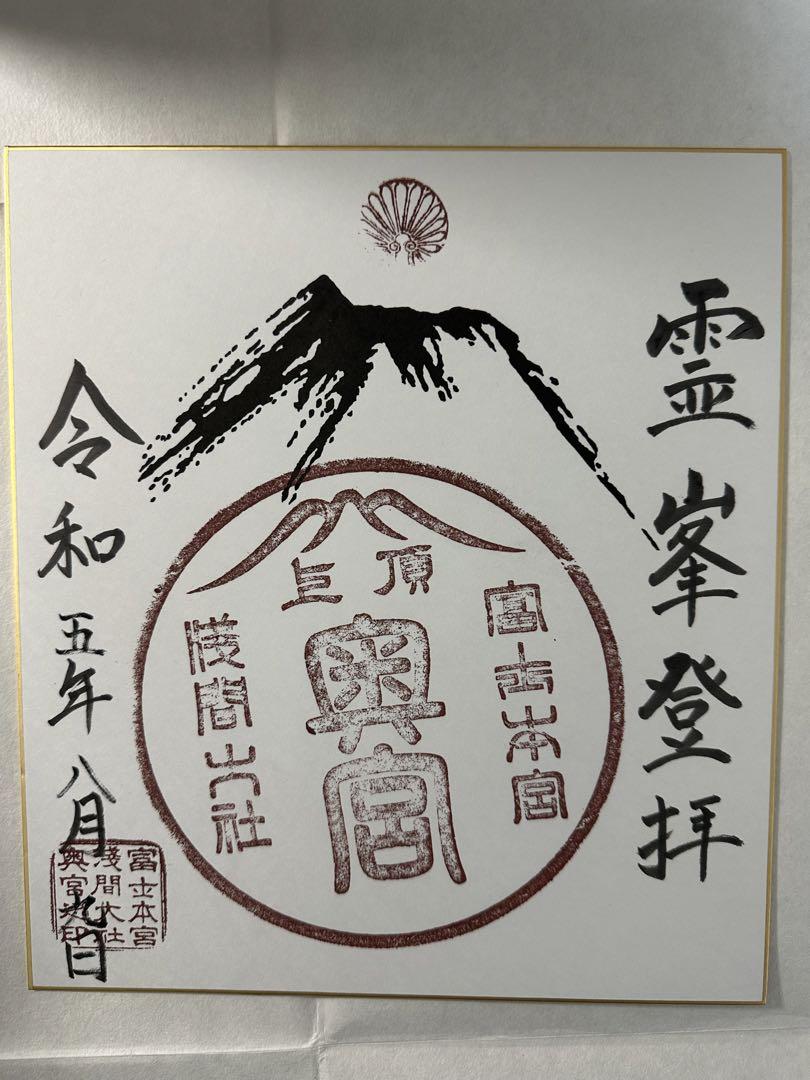 霊峯登拝
頂上
富士本宮
奥宮
浅間大社
令和五年八月九日
富士本宮
浅間大社
奥宮之印